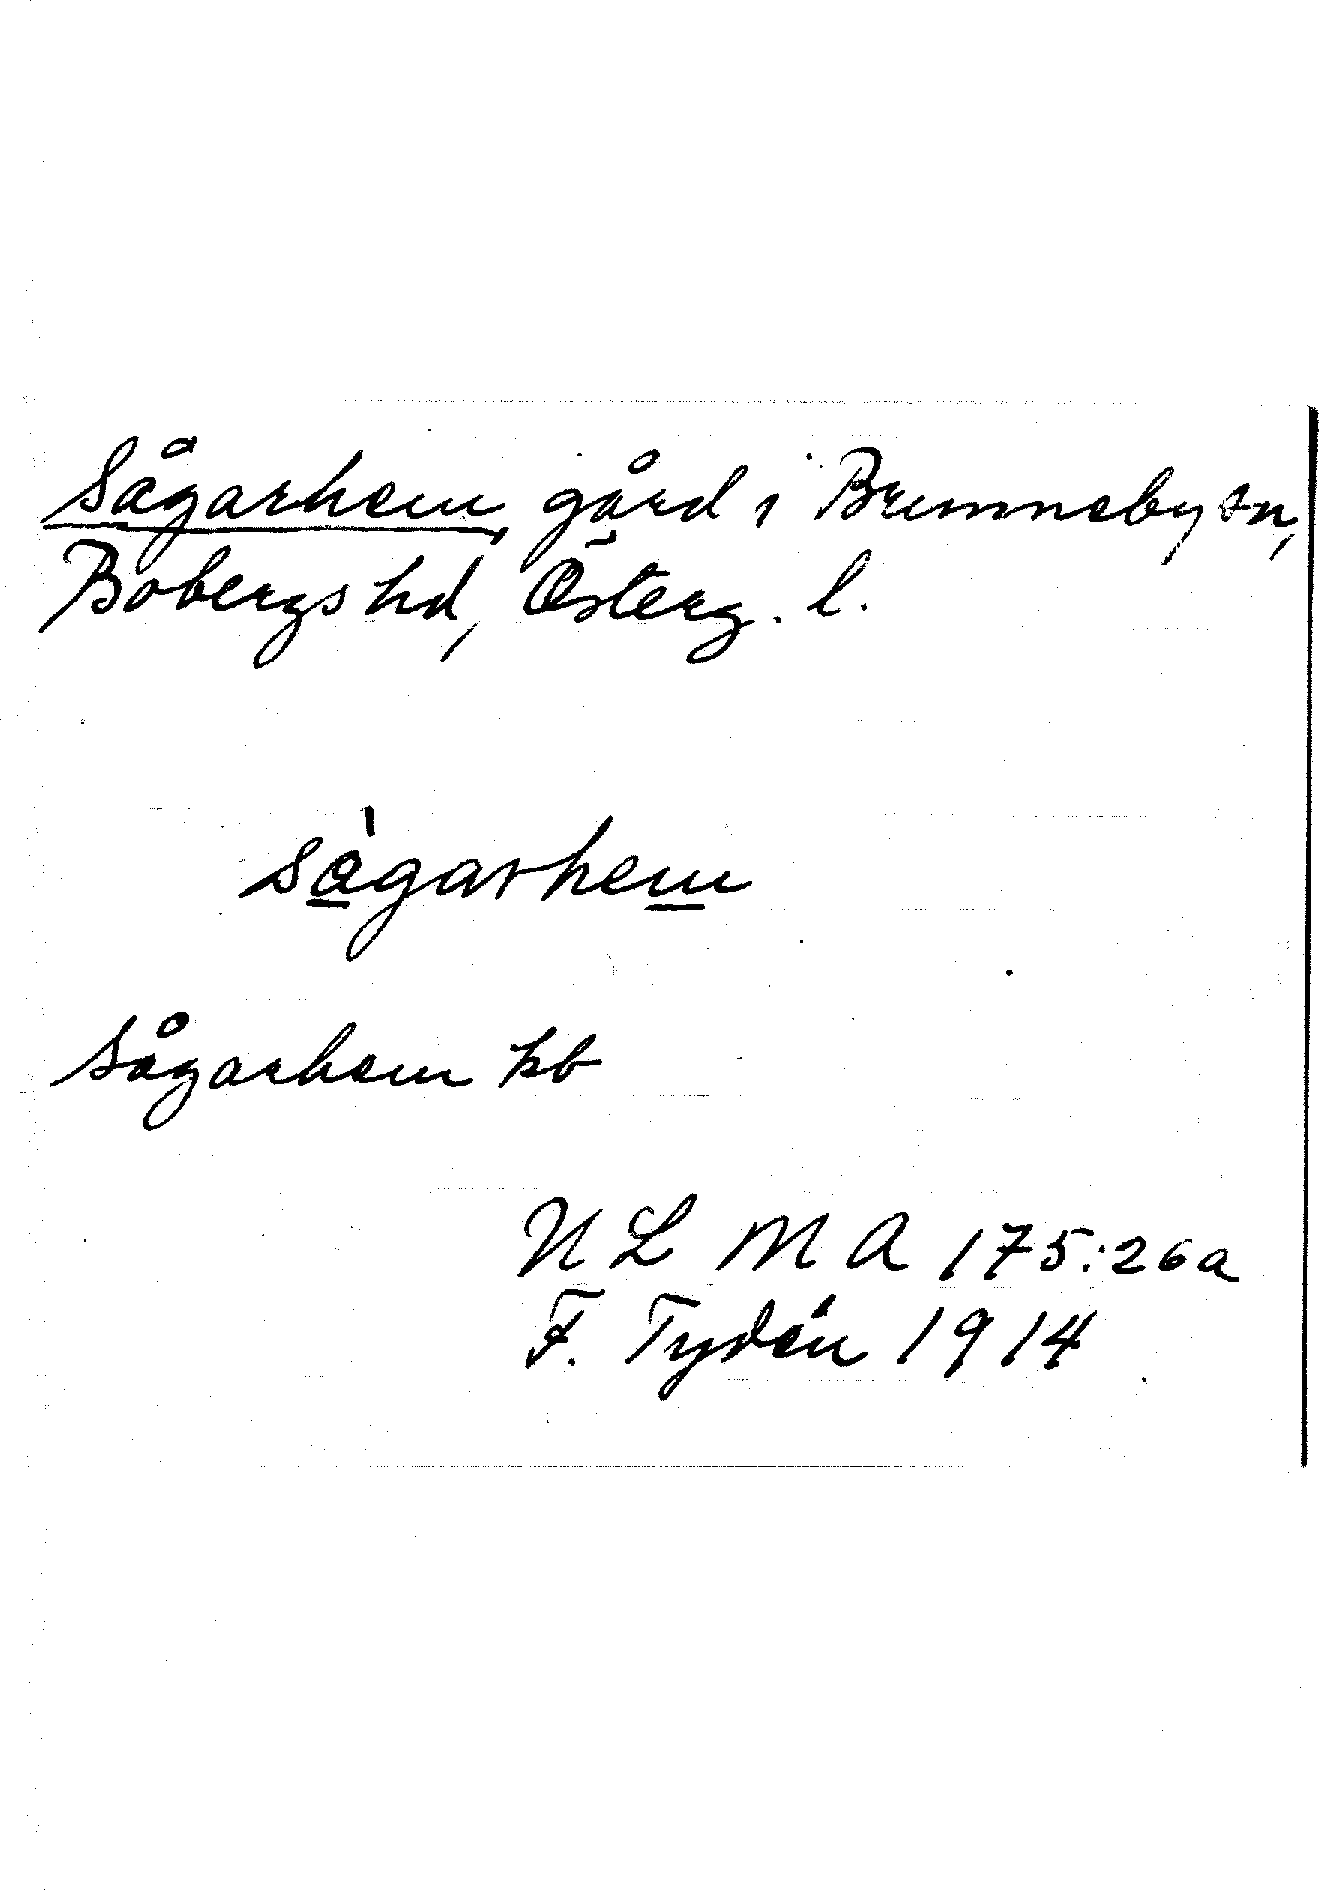 Sågarhem, gård i Brunneby sn,
Bobergs hd, Österg. l.
sàgarhem
Sågarhem kb
ULMA 175:26a
F. Tydén 1914